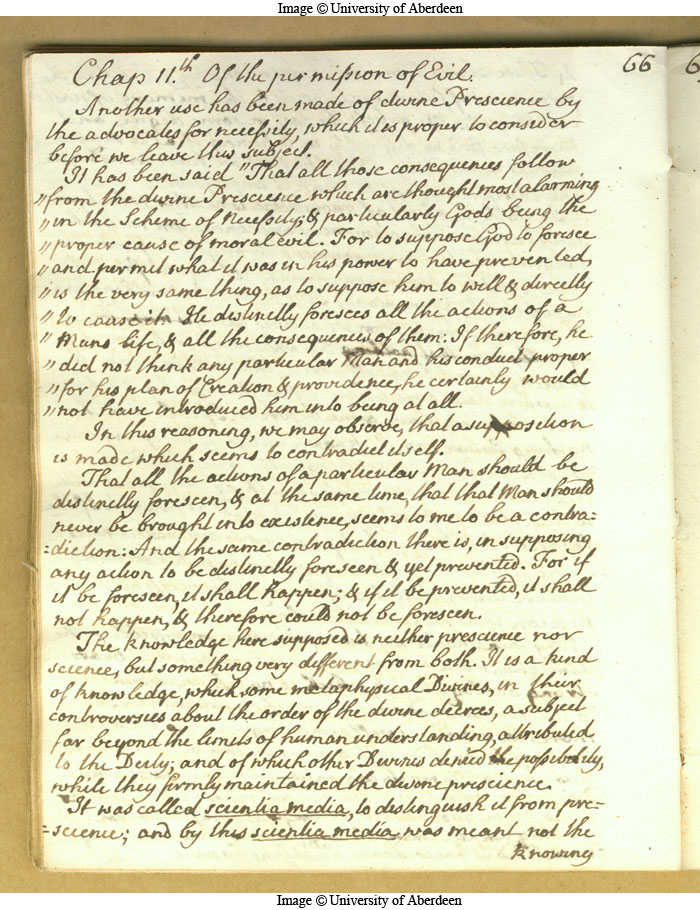 Image © University of Aberdeen
66
Chap 11.th Of the permission of Evil.
Another use has been made of divine Prescience by
the advocates for necessity, which it is proper to consider
before we leave this subject.
It has been said "That all those consequences follow
"from the divine Prescience which are thought most alarming
"in the Scheme of necessity; & particularly Gods being the
"proper cause of moral evil. For to suppose God to foresee
"and permit what it was in his power to have prevented,
"is the very same thing, as to suppose him to will & directly
"to cause it. He distinctly foresees all the actions of a
"Mans life, & all the consequences of them: If therefore, he
"did not think any particular Man and his conduct proper
"for his plan of Creation & providence, he certainly would
"not have introduced him into being at all.
In this reasoning, we may observe, that a supposition
is made which seems to contradict itself.
That all the actions of a particular Man should be
distinctly foreseen, & at the same time, that that Man should
never be brought into existence, seems to me to be a contra=
=diction: And the same contradiction there is, in supposing
any action to be distinctly foreseen & yet prevented. For if
it be foreseen, it shall happen; & if it be prevented, it shall
not happen, & therefore could not be foreseen.
The knowledge here supposed is neither prescience nor
science, but something very different from both. It is a kind
of knowledge, which some metaphysical Divines, in their
controversies about the order of the divine decrees, a subject
far beyond the limits of human understanding, attributed
to the Deity; and of which other Divines denied the possibility,
while they firmly maintained the divine prescience.
It was called scientia media, to distinguish it from pre=
=science; and by this scientia media was meant not the
knowing
Image © University of Aberdeen